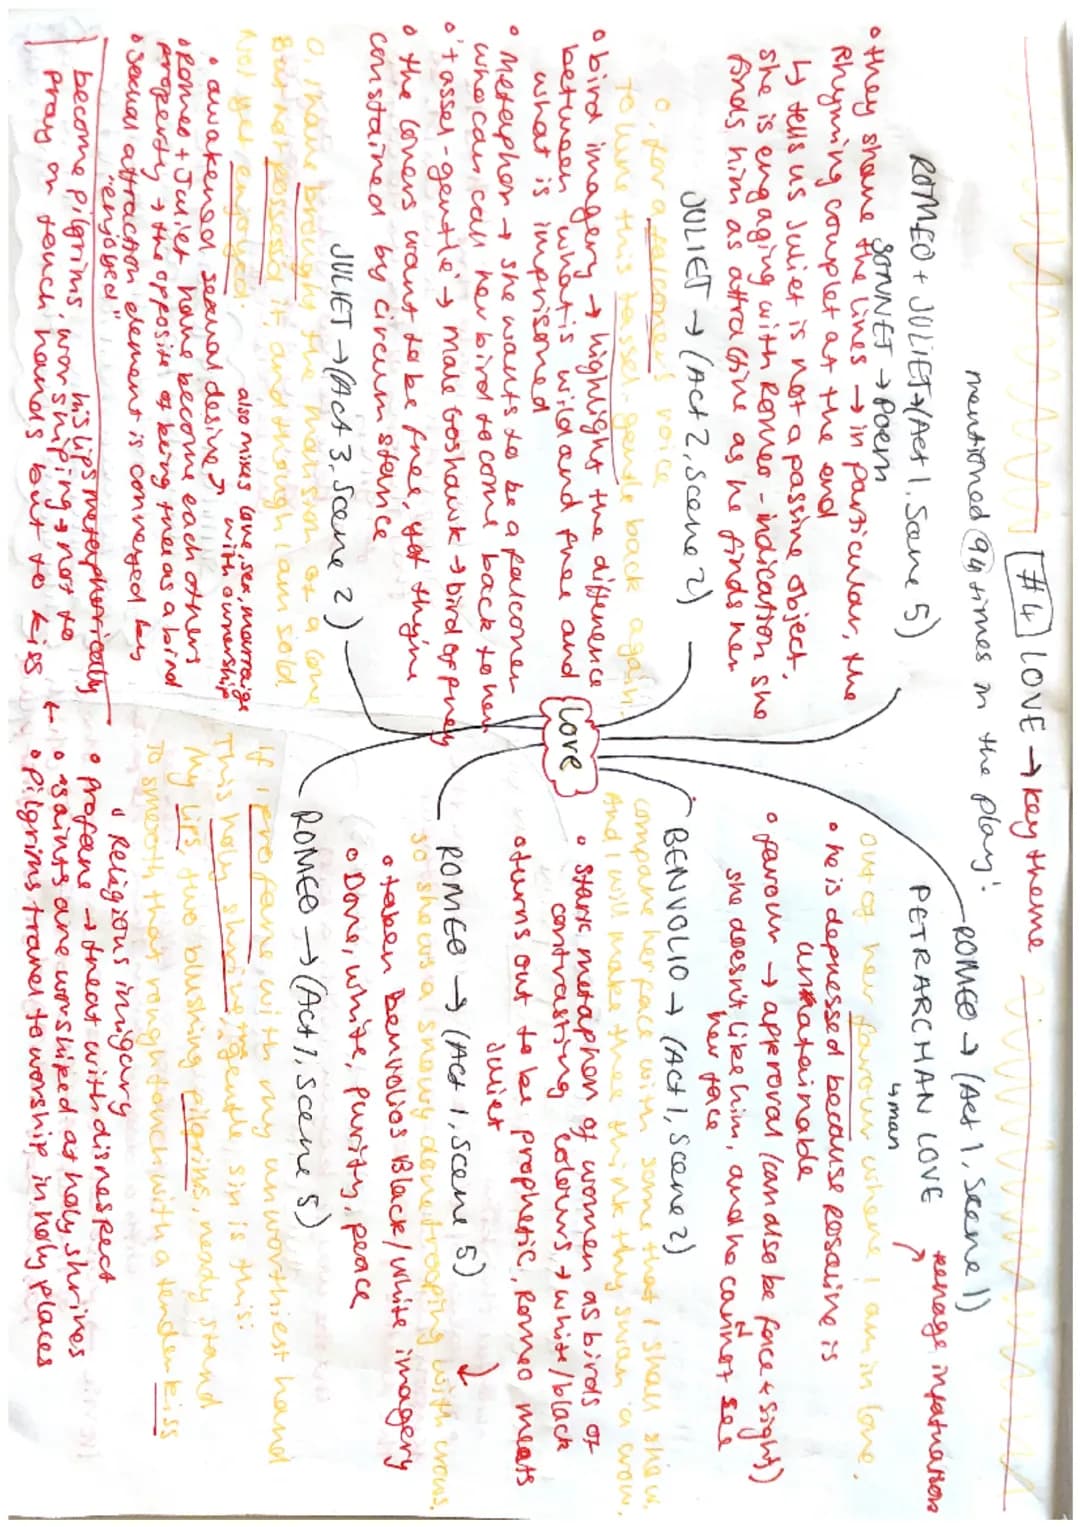 #4 LOVE → key theme
mentioned 94 times in the play!
ROMEO + JULIET → (Act 1, Scene 5)
SONNET → Poem
• they share the lines → in particular, the
rhyming couplet at the end
↳ tells us Juliet is not a passive object.
she is engaging with Romeo - indication she
finds him as attractive as he finds her
JULIET → (Act 2, Scene 2)
O, for a falconer's voice
To lure this tassel-gentle back again.
• bird imagery → highlight the difference
between what is wild and free and
what is imprisoned
• Metaphor → she wants to be a falconer
who can call her bird to come back to her
• 'tassel-gentle' → male Goshawk → bird of prey
• the lovers want to be free, yet they're
constained by circumstance
JULIET → (Act 3, Scene 2)
O, I have brought the mansion of a love
But not possess'd it, and though I am sold
Not yet enjoyed.
also mixes love, sex, marraige
with ownership
• awakened sexual desire
• Romeo + Juliet have become each others
property → the opposite of being free as a bird
• Sexual attraction element is conveyed by
"enjoyed"
his lips metaphorically
become pilgrims, worshiping → not to
pray or touch hands but to kiss ←
love
ROMEO → (Act 1, Scene 1)
PETRARCHAN LOVE
↳ man
teenage infatuation
Out of her favour where I am in love.
• he is depressed because Rosaline is
unatainable
• favour → approval (can also be face + sight)
she doesn't like him, and he cannot see
her face
BENVOLIO → (Act 1, Scene 2)
Compare her face with some that I shall show,
And I will make thee think thy swan a crow.
• Stark metaphor of women as birds of
contrasting colours → white/black
• turns out to be prophetic, Romeo meets
Juliet
ROMEO → (Act 1, Scene 5)
So shows a snowy dove trooping with crows.
• taken Benvolios Black/white imagery
• Dove, white, purity, peace
ROMEO → (Act 1, Scene 5)
If I profane with my unworthiest hand
This holy shrine, the gentle sin is this:
My lips, two blushing pilgrims, ready stand
To smooth that rough touch with a tender kiss
• Religious imigary
• Profane → treat with disrespect
• saints are worshiped at holy shrines
• Pilgrims travel to worship in holy places